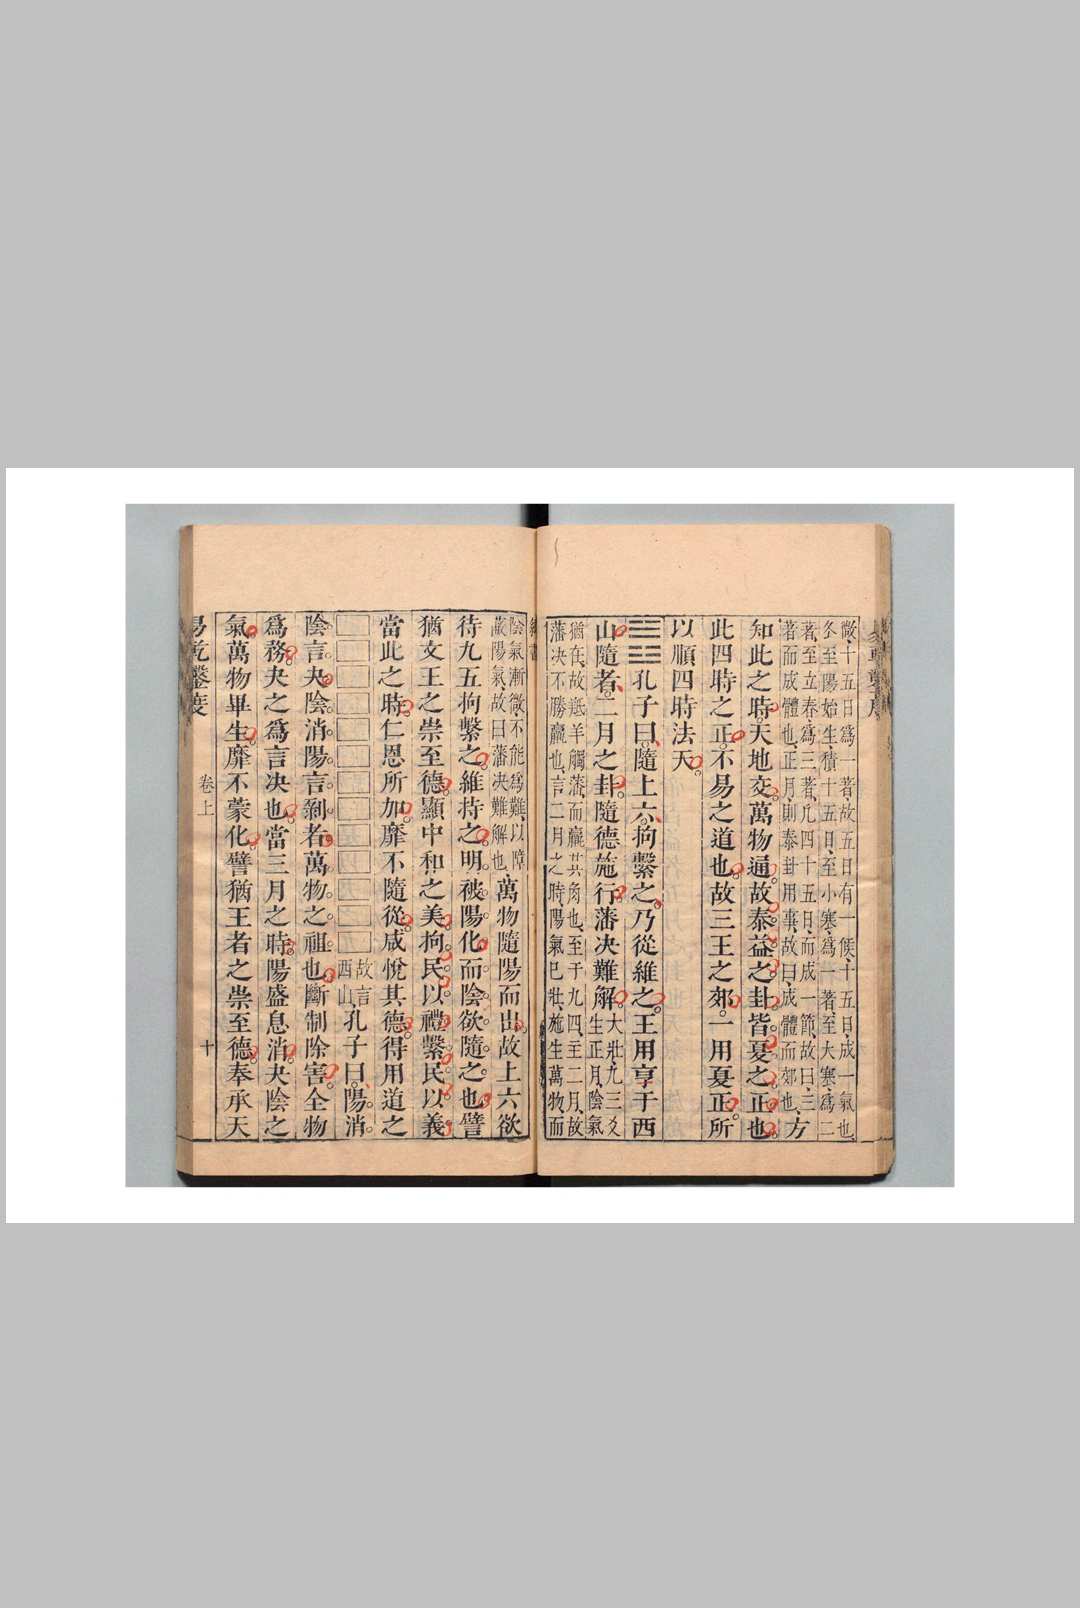 微、十五日爲一著、故五日有一候、十五日、成一氣也、
冬至陽始生、積十五日、至小寒、爲一著、至大寒、爲二
著、至立春、爲三著、凡四十五日、而成一節、故曰三
著而成體也、正月、則泰卦用事、故曰成體而郊也、方
知此之時。天地交。萬物通。故泰益之卦。皆夏之正也。
此四時之正。不易之道也。故三王之郊。一用夏正。所
以順四時法天。
䷐孔子曰、隨上六、拘繫之、乃從維之。王用亨于西
山。隨者。二月之卦。隨德施行。藩決難解。
大壯、九三爻
生正月、陰氣
猶在、故羝羊觸藩、而羸其角也、至于九四、主二月、故
藩決不勝羸也、言二月之時、陽氣已壯、施生萬物、而
陰氣漸微、不能爲難、以障
蔽陽氣、故曰藩決難解也、
萬物隨陽而出。故上六欲
待九五拘繫之。維持之。明。被陽化。而陰欲隨之也。譬
猶文王之崇至德。顯中和之美。拘民以禮。繫民以義。
當此之時。仁恩所加。靡不隨從。咸悅其德。得用道之
故言
西山、
孔子曰、陽消。
陰言夬。陰消。陽言剝者。萬物之祖也。斷制除害。全物
爲務。夬之爲言決也。當三月之時。陽盛息。消夬陰之
氣。萬物畢生。靡不蒙化。譬猶王者之崇至德。奉承天
易乾鑿度
卷上
十